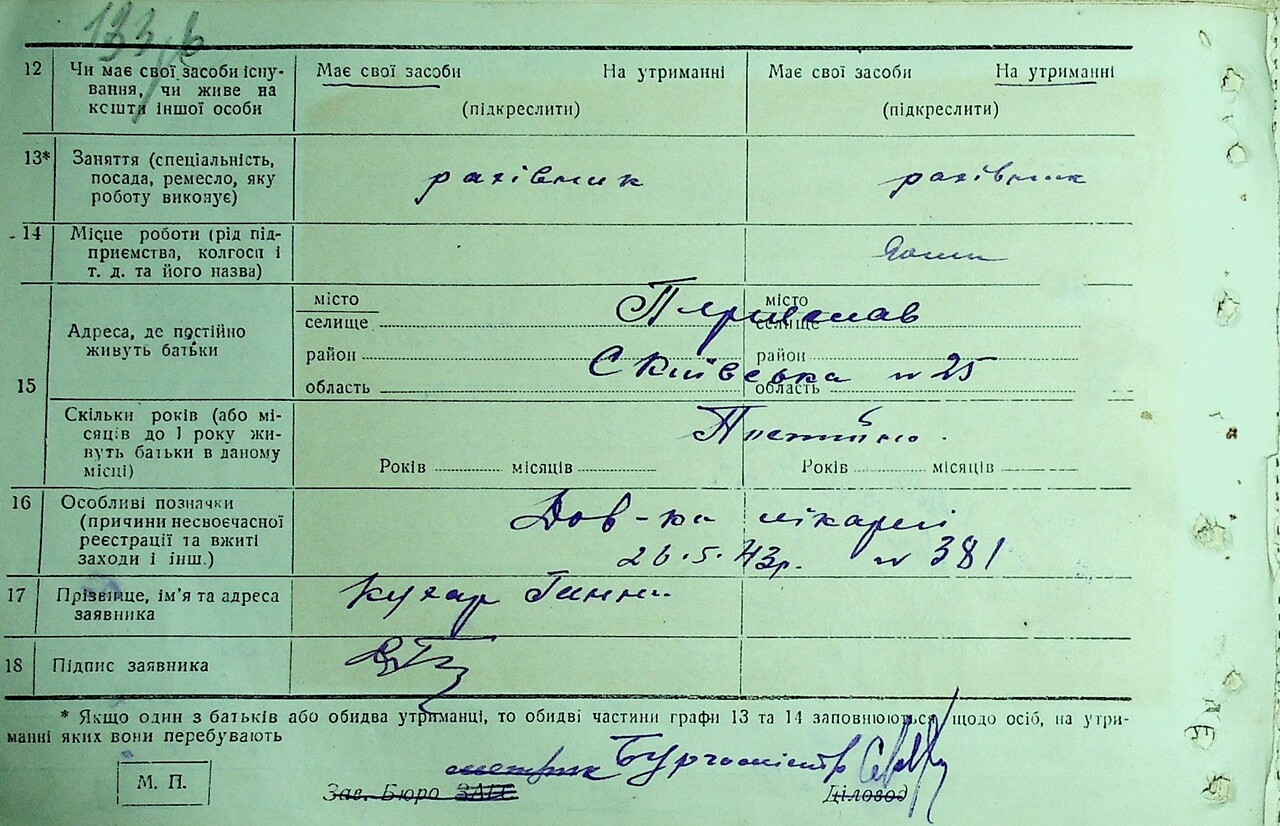 133
12 Чи має свої засоби існу-
вання, чи живе на
кошти іншої особи
Має свої засоби На утриманні
(підкреслити)
Має свої засоби На утриманні
(підкреслити)
13* Заняття (спеціальність,
посада, ремесло, яку
роботу виконує)
рахівник
рахівник
14 Місце роботи (рід під-
приємства, колгосп і
т. д. та його назва)
15 Адреса, де постійно
живуть батьки
місто
селище
район
область
місто
селище
район
область
Переяслав
Київська № 25
Скільки років (або мі-
сяців до 1 року жи-
вуть батьки в даному
місці)
Постійно.
Років місяців
Років місяців
16 Особливі позначки
(причини несвоєчасної
реєстрації та вжиті
заходи і інш.)
Дов-ка лікарні
26.5.43р. № 381
17 Прізвище, ім'я та адреса
заявника
Кухар Ганна
18 Підпис заявника
* Якщо один з батьків або обидва утриманці, то обидві частини графи 13 та 14 заповнюються щодо осіб, на утри-
манні яких вони перебувають
Бургомістр
М. П.
Зав. Бюро ЗАГС
Діловод